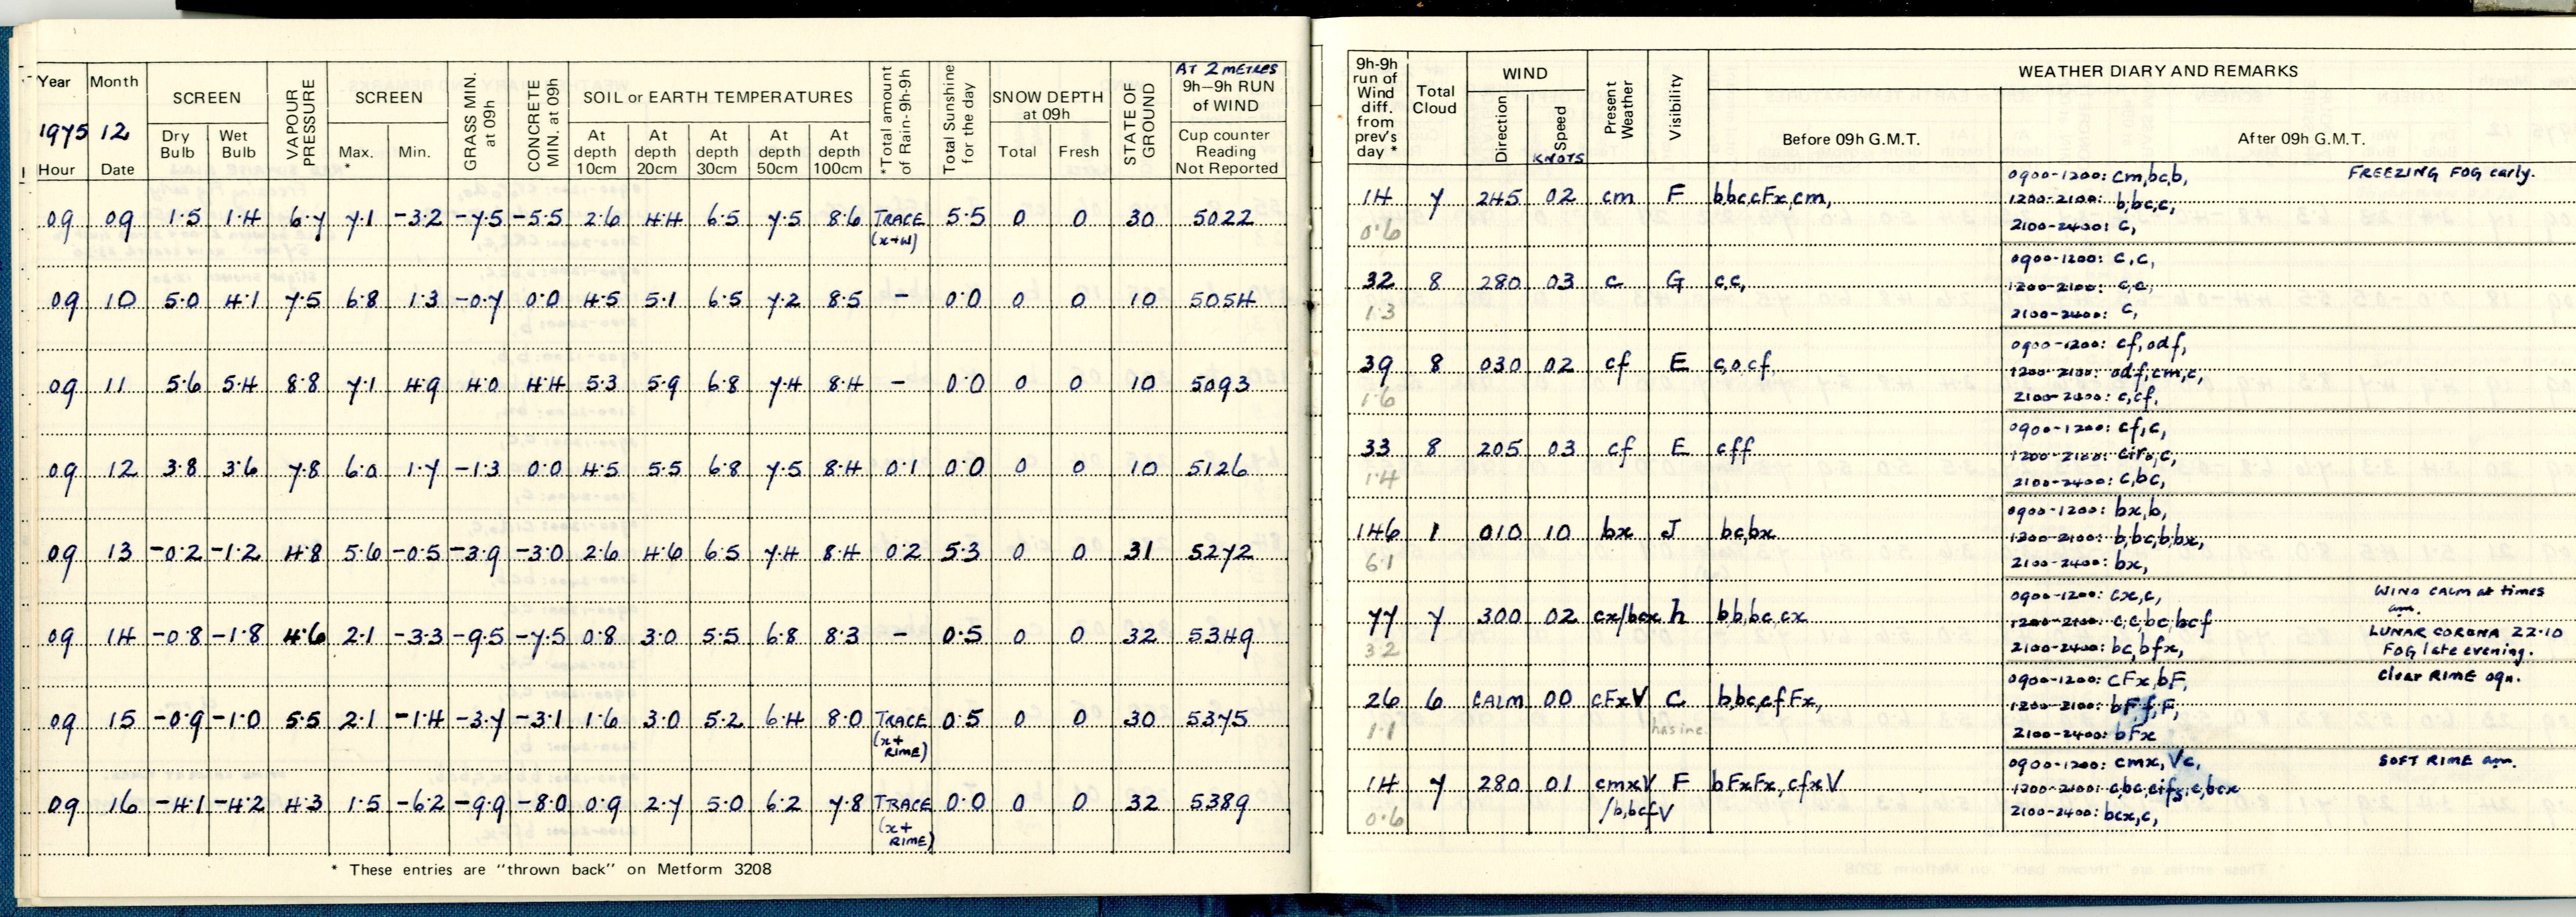 Year Month
1975 12
Hour Date
SCREEN
Dry Bulb Wet Bulb
VAPOUR PRESSURE
SCREEN
Max. * Min.
GRASS MIN. at 09h
CONCRETE MIN. at 09h
SOIL or EARTH TEMPERATURES
At depth 10cm At depth 20cm At depth 30cm At depth 50cm At depth 100cm
*Total amount of Rain-9h-9h
Total Sunshine for the day
SNOW DEPTH at 09h
Total Fresh
STATE OF GROUND
AT 2 METRES
9h–9h RUN of WIND
Cup counter Reading Not Reported
09 09 1.5 1.4 6.7 7.1 -3.2 -7.5 -5.5 2.6 4.4 6.5 7.5 8.6 TRACE (x+w) 5.5 0 0 30 5022
09 10 5.0 4.1 7.5 6.8 1.3 -0.7 0.0 4.5 5.1 6.5 7.2 8.5 – 0.0 0 0 10 5054
09 11 5.6 5.4 8.8 7.1 4.9 4.0 4.4 5.3 5.9 6.8 7.4 8.4 – 0.0 0 0 10 5093
09 12 3.8 3.6 7.8 6.0 1.7 -1.3 0.0 4.5 5.5 6.8 7.5 8.4 0.1 0.0 0 0 10 5126
09 13 -0.2 -1.2 4.8 5.6 -0.5 -3.9 -3.0 2.6 4.6 6.5 7.4 8.4 0.2 5.3 0 0 31 5272
09 14 -0.8 -1.8 4.6 2.1 -3.3 -9.5 -7.5 0.8 3.0 5.5 6.8 8.3 – 0.5 0 0 32 5349
09 15 -0.9 -1.0 5.5 2.1 -1.4 -3.7 -3.1 1.6 3.0 5.2 6.4 8.0 TRACE (x+ RIME) 0.5 0 0 30 5375
09 16 -4.1 -4.2 4.3 1.5 -6.2 -9.9 -8.0 0.9 2.7 5.0 6.2 7.8 TRACE (x+ RIME) 0.0 0 0 32 5389
* These entries are "thrown back" on Metform 3208
9h-9h run of Wind diff. from prev's day *
Total Cloud
WIND
Direction Speed KNOTS
Present Weather
Visibility
WEATHER DIARY AND REMARKS
Before 09h G.M.T. After 09h G.M.T.
14 7 245 02 cm F bbccFx,cm,
0.6
0900-1200: cm,bc,b, FREEZING FOG early.
1200-2100: b,bc,c,
2100-2400: c,
32 8 280 03 c G c,c,
1.3
0900-1200: c,c,
1200-2100: c,c,
2100-2400: c,
39 8 030 02 cf E c,o,cf,
1.6
0900-1200: cf,odf,
1200-2100: odf,cm,c,
2100-2400: c,cf,
33 8 205 03 cf E cff
1.4
0900-1200: cf,c,
1200-2100: ciro,c,
2100-2400: c,bc,
146 1 010 10 bx J bc,bx
6.1
0900-1200: bx,b,
1200-2100: b,bc,b,bx,
2100-2400: bx,
77 7 300 02 cx/bcx h b,b,bc,cx
3.2
0900-1200: cx,c, WIND CALM at times am.
1200-2100: c,c,bc,bcf
LUNAR CORONA 22.10
2100-2400: bc,bfx, FOG late evening.
26 6 CALM 00 cFxV C b,bc,cfFx,
1.1
0900-1200: cFx,bF, Clear RIME 09h.
1200-2100: bF,f,F,
2100-2400: bFx
14 7 280 01 cmxV F bFxFx,cfxV
0.6 /b,bcfV
0900-1200: cmx,Vc, SOFT RIME am.
1200-2100: c,bc,cifs,c,bcx
2100-2400: bcx,c,